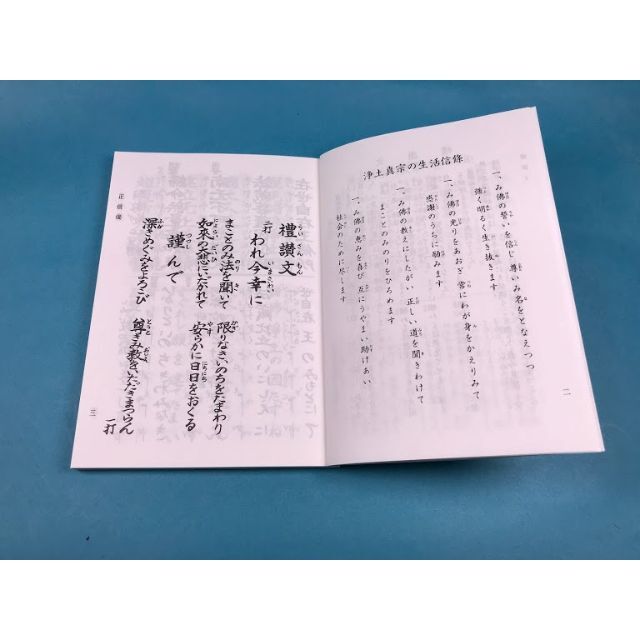 浄土真宗の生活信條
一、み佛の誓いを信じ 尊いみ名をとなえつつ
強く明るく生き抜きます
一、み佛の光りをあおぎ 常にわが身をかえりみて
感謝のうちに励みます
一、み佛の教えにしたがい 正しい道を聞きわけて
まことのみのりをひろめます
一、み佛の恵みを喜び 互にうやまい助けあい
社会のために尽します
二
禮讃文
二打 われ今幸に
まことのみ法を聞いて 限りなきいのちをたまわり
如来の大悲にいだかれて 安らかに日日をおくる
謹んで
深きめぐみをよろこび 尊きみ教をいただきまつらん
一打
正信偈
三